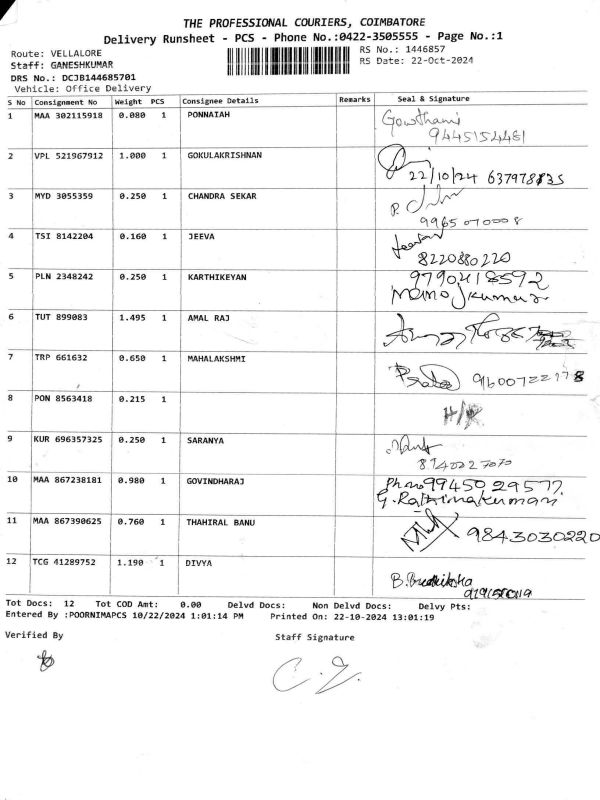 THE PROFESSIONAL COURIERS, COIMBATORE
Delivery Runsheet - PCS - Phone No.:0422-3505555 - Page No.:1
Route: VELLALORE RS No.: 1446857
Staff: GANESHKUMAR RS Date: 22-Oct-2024
DRS No.: DCJB144685701
Vehicle: Office Delivery
S No Consignment No Weight PCS Consignee Details Remarks Seal & Signature
1 MAA 302115918 0.080 1 PONNAIAH Gowthami
9445154481
2 VPL 521967912 1.000 1 GOKULAKRISHNAN
22/10/24
3 MYD 3055359 0.250 1 CHANDRA SEKAR
9965070008
4 TSI 8142204 0.160 1 JEEVA
8220880220
5 PLN 2348242 0.250 1 KARTHIKEYAN 9790418592
Manojkumar
6 TUT 899083 1.495 1 AMAL RAJ
7 TRP 661632 0.650 1 MAHALAKSHMI
8 PON 8563418 0.215 1
9 KUR 696357325 0.250 1 SARANYA
10 MAA 867238181 0.980 1 GOVINDHARAJ
11 MAA 867390625 0.760 1 THAHIRAL BANU 9843030220
12 TCG 41289752 1.190 1 DIVYA
Tot Docs: 12 Tot COD Amt: 0.00 Delvd Docs: Non Delvd Docs: Delvy Pts:
Entered By :POORNIMAPCS 10/22/2024 1:01:14 PM Printed On: 22-10-2024 13:01:19
Verified By Staff Signature